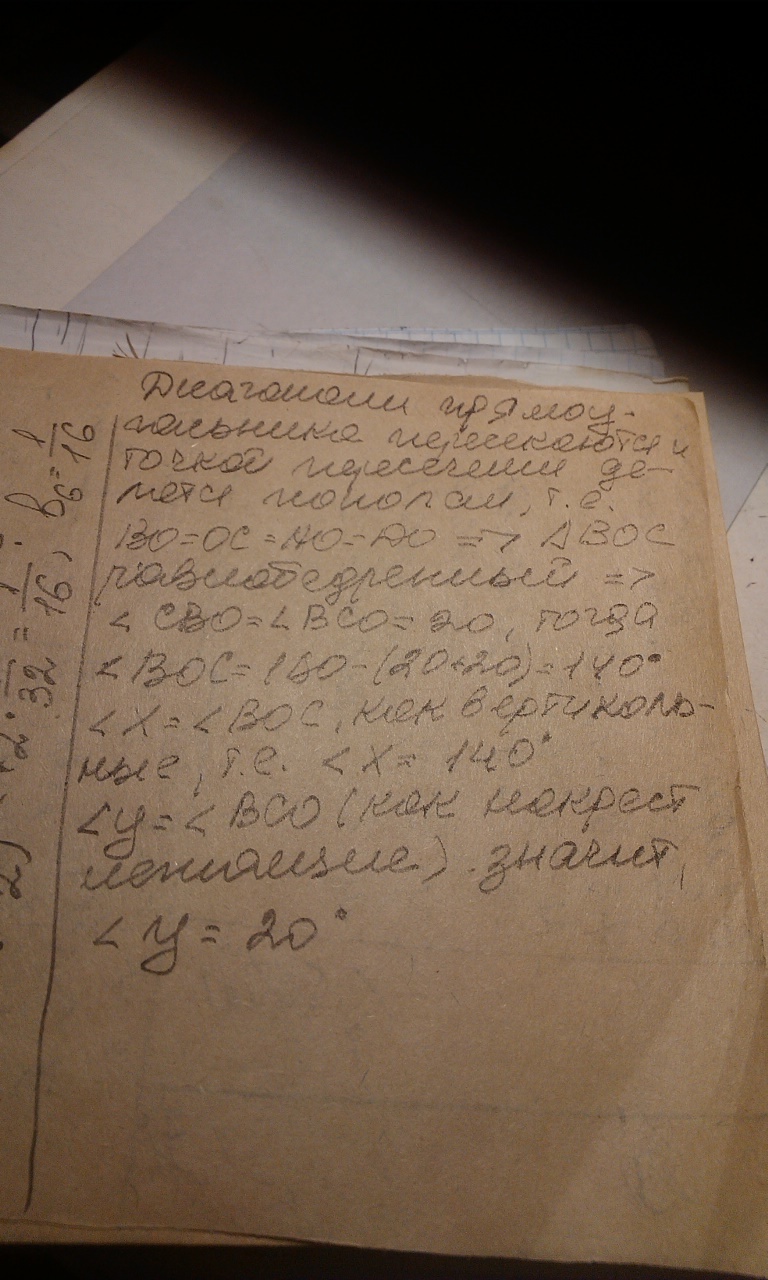 Диагонали прямоу-
гольника пересекаются и
точкой пересечения де-
лятся пополам, т.е.
BO=OC=AO=DO => ΔBOC
равнобедренный =>
∠ CBO=∠BCO=20, тогда
∠BOC=180-(20+20)=140°
∠X=∠BOC, как вертикаль-
ные, т.е. ∠X= 140°
∠y=∠BCO (как накрест
лежащие). значит,
∠y= 20°
32 = 1/16, b₆=1/16